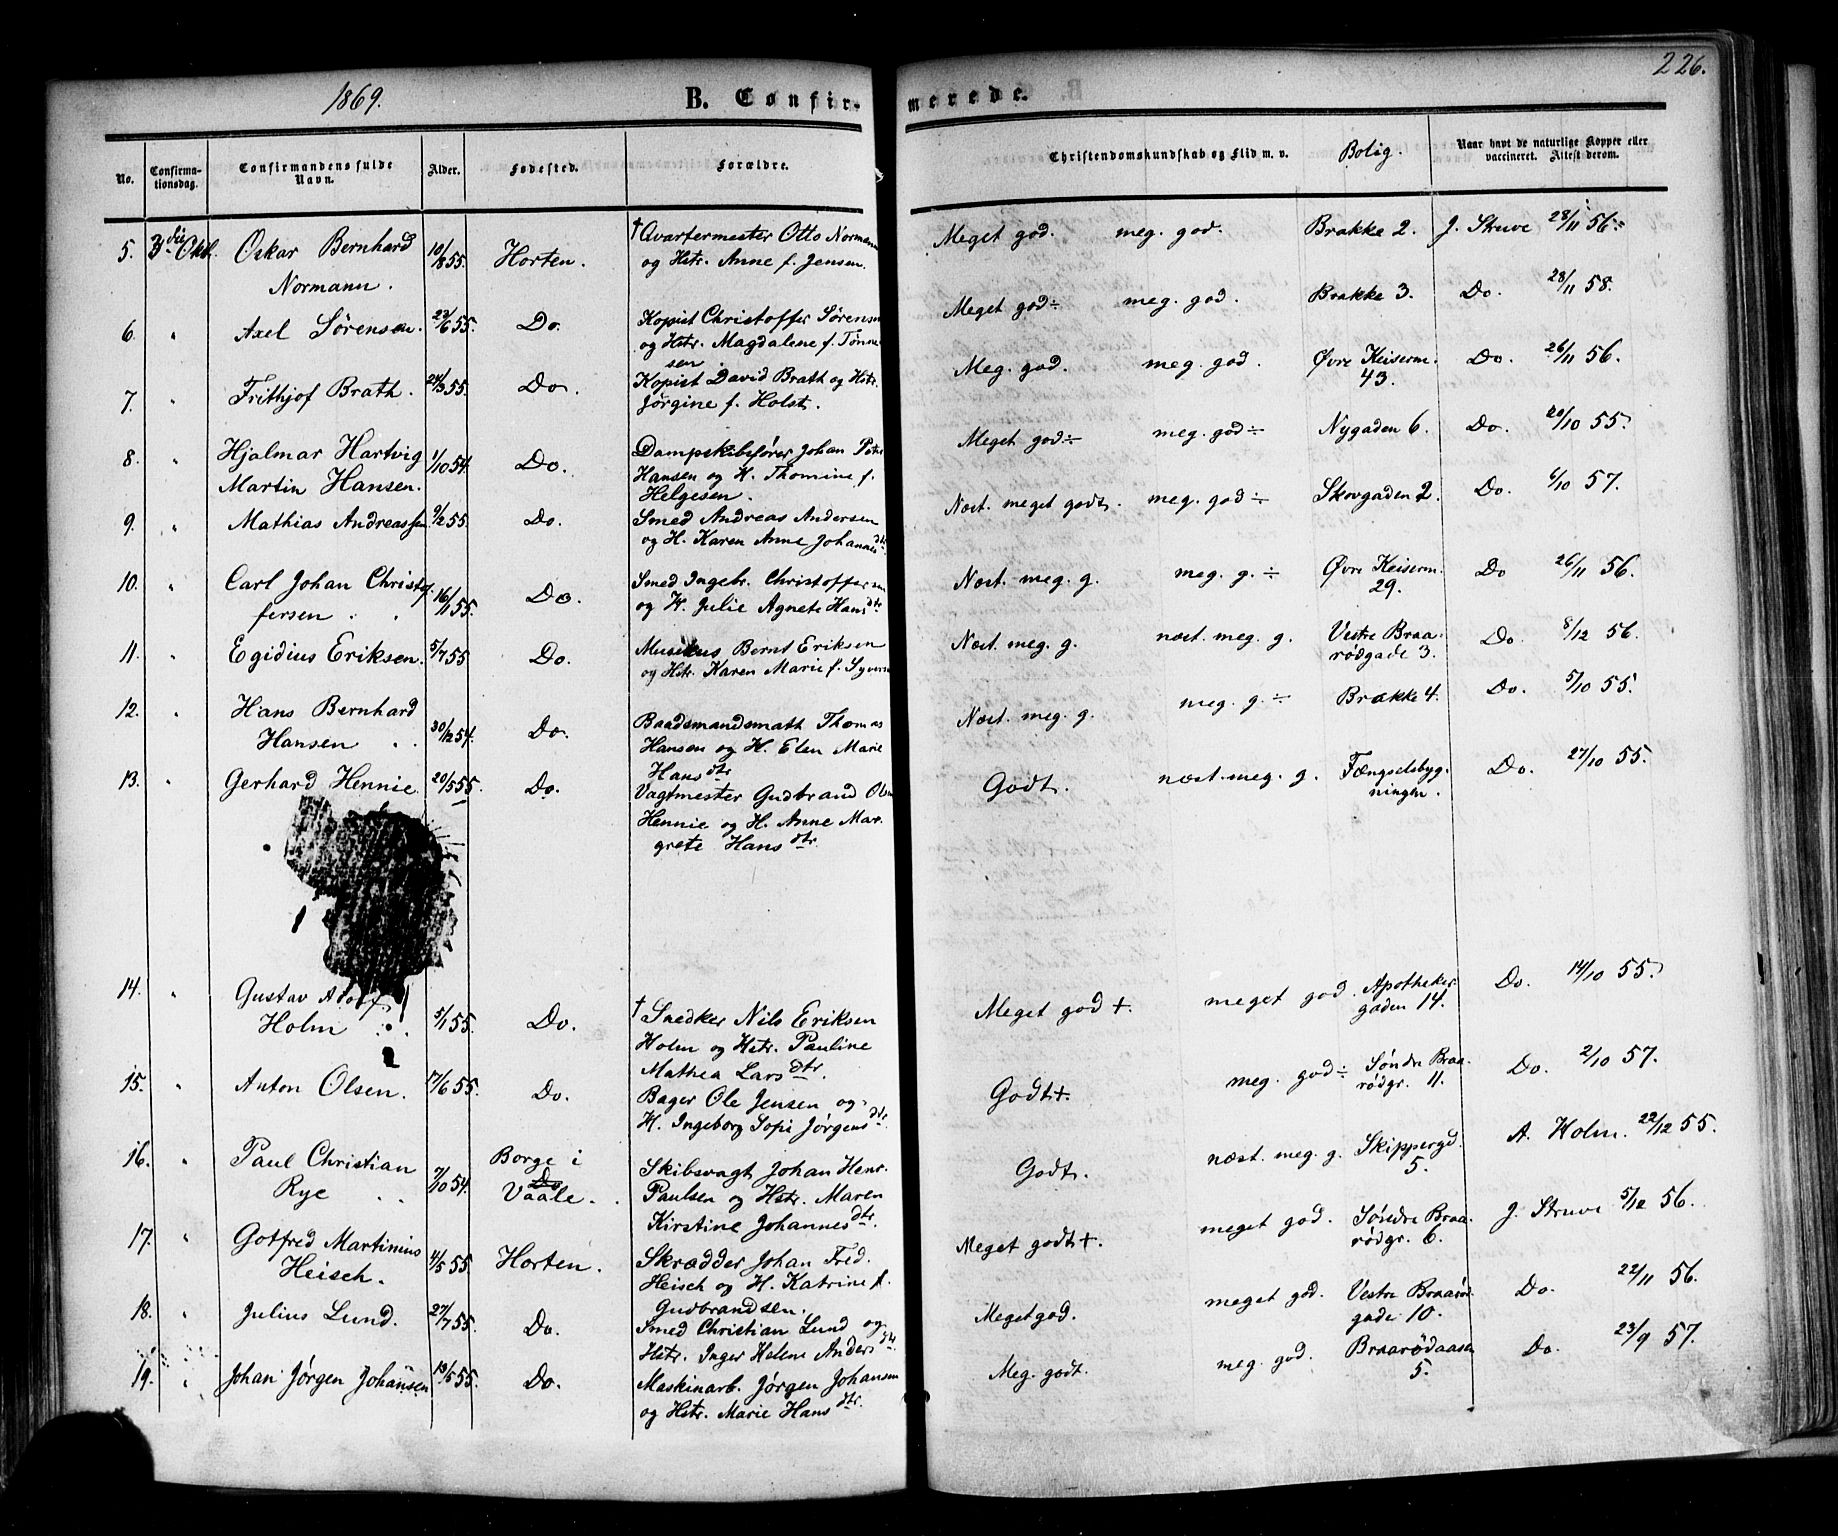 1869.
B. Confir-
merede.
226.
No.
Confirma-
tionsdag.
Confirmandens fulde
Navn.
Alder.
Fødested.
Forældre.
Christendomskundskab og Flid m. v.
Bolig.
Naar havt de naturlige Kopper eller
vaccineret. Attest derom.
5. 3die Okt. Oskar Bernhard 10/8 55. Horten. † Qvartermester Otto Normann Meget god. meg. god. Brakke 2. J. Struve 28/11 56.
Normann. og Hstr. Anne f. Jensen.
6. " Axel Sörensen. 23/6 55. Do. Kopist Christoffer Sörensen Meget god ÷ meg. god. Brakke 3. Do. 28/11 58.
og Hstr. Magdalene f. Tönne
sen
7. " Frithjof Brath. 24/3 55. Do. Kopist David Brath og Hstr. Meg. god. meg. god. Øvre Keiserm. Do. 26/11 56.
Jørgine f. Holst. 43.
8. " Hjalmar Hartvig 1/10 54. Do. Dampskibsfører Johan Peter Meget god ÷ meg. god ÷ Nygaden 6. Do. 20/10 55.
Martin Hansen. Hansen og H. Thomine f.
Helgesen.
9. " Mathias Andreassen 9/2 55. Do. Smed Andreas Andersen Næst. meget godt. meg. god ÷ Skovgaden 2. Do. 6/10 57.
og H. Karen Anne Johannesdtr.
10. " Carl Johan Christof 16/11 55. Do. Smed Ingebr. Christoffersen Næst. meg. g. meg. g. ÷ Øvre Keiserm. Do 26/11 56.
fersen og H. Julie Agnete Hansdtr 29.
11. " Egidius Eriksen. 5/7 55 Do. Musikus Bernt Eriksen Næst. meg. g. næst. meg. g. Vestre Braa- Do. 8/12 56.
og Hstr. Karen Marie f. Syvers rödgade 3.
12. " Hans Bernhard 30/12 54. Do. Baadsmandsmath Thomas Næst. meg. g. meg. g. ÷ Brakke 4. Do. 5/10 55.
Hansen Hansen og H. Elen Marie
Hansdtr
13. " Gerhard Hennie. 20/5 55. Do. Vagtmester Gudbrand Olsen Godt. næst. meg. g. Fængselsbyg- Do. 27/10 55.
Hennie og H. Anne Mar- ningen.
grete Hansdtr.
14. " Gustav Adolf 5/1 55. Do. † Snedker Nils Eriksen Meget god +. meget god. Apotheker Do. 14/10 55.
Holm Holm og Hstr. Pauline gaden 14.
Mathea Larsdtr.
15. " Anton Olsen. 17/6 55. Do. Bager Ole Jensen og Godt +. meg. god ÷ Söndre Braa- Do. 2/10 57.
H. Ingeborg Sofi Jørgensdtr rödgr. 11.
16. " Paul Christian 7/10 54. Borge i Skibsvagt Johan Henr. Godt. næst. meg. g. Skippergd. A. Holm. 22/12 55.
Do
Rye Vaale. Paulsen og Hstr. Maren 5.
Kirstine Johannesdtr.
17. " Gotfred Martinius 4/5 55. Horten. Skrædder Johan Fred. Meget godt +. meget god. Söndre Braa- J. Struve 5/12 56.
Heisch. Heisch og H. Katrine f. rödgr. 6.
Gudbrandsen.
18. " Julius Lund. 27/7 55. Do. Smed Christian Lund og Meget god. meget god. Vestre Braaröd Do. 22/11 56.
Hstr. Inger Helene Andersdtr. gade 10.
19. " Johan Jörgen Johansen 19/5 55. Do. Maskinarb. Jörgen Johansen Meg. godt. meg. god. Braarödaasen Do. 23/9 57.
og Hstr. Marie Hansdtr. 5.